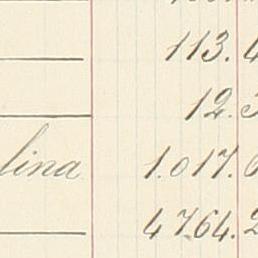 113.4
12.3
lina 1.017.6
4764.2